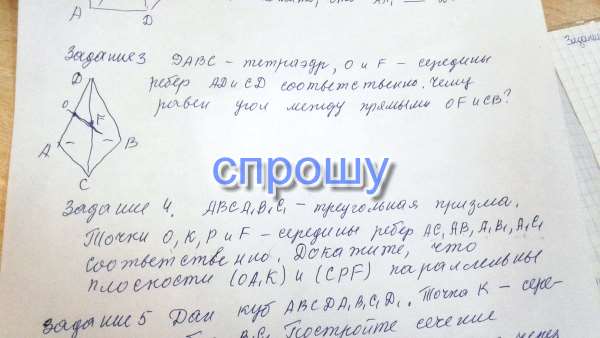 A D
Задание 3 DABC – тетраэдр, O и F – середины
D
ребер AD и CD соответственно. Чему
O
F
равен угол между прямыми OF и CB?
A B
C
спрошу
Задание 4. ABCA₁B₁C₁ – треугольная призма.
Точки O, K, P и F – середины ребер AC, AB, A₁B₁, A₁C₁
соответственно. Докажите, что
плоскости (OA₁K) и (CPF) параллельны
Задание 5 Дан куб ABCDA₁B₁C₁D₁. Точка K – сере-
B₁C₁ Постройте сечение
через
Задани